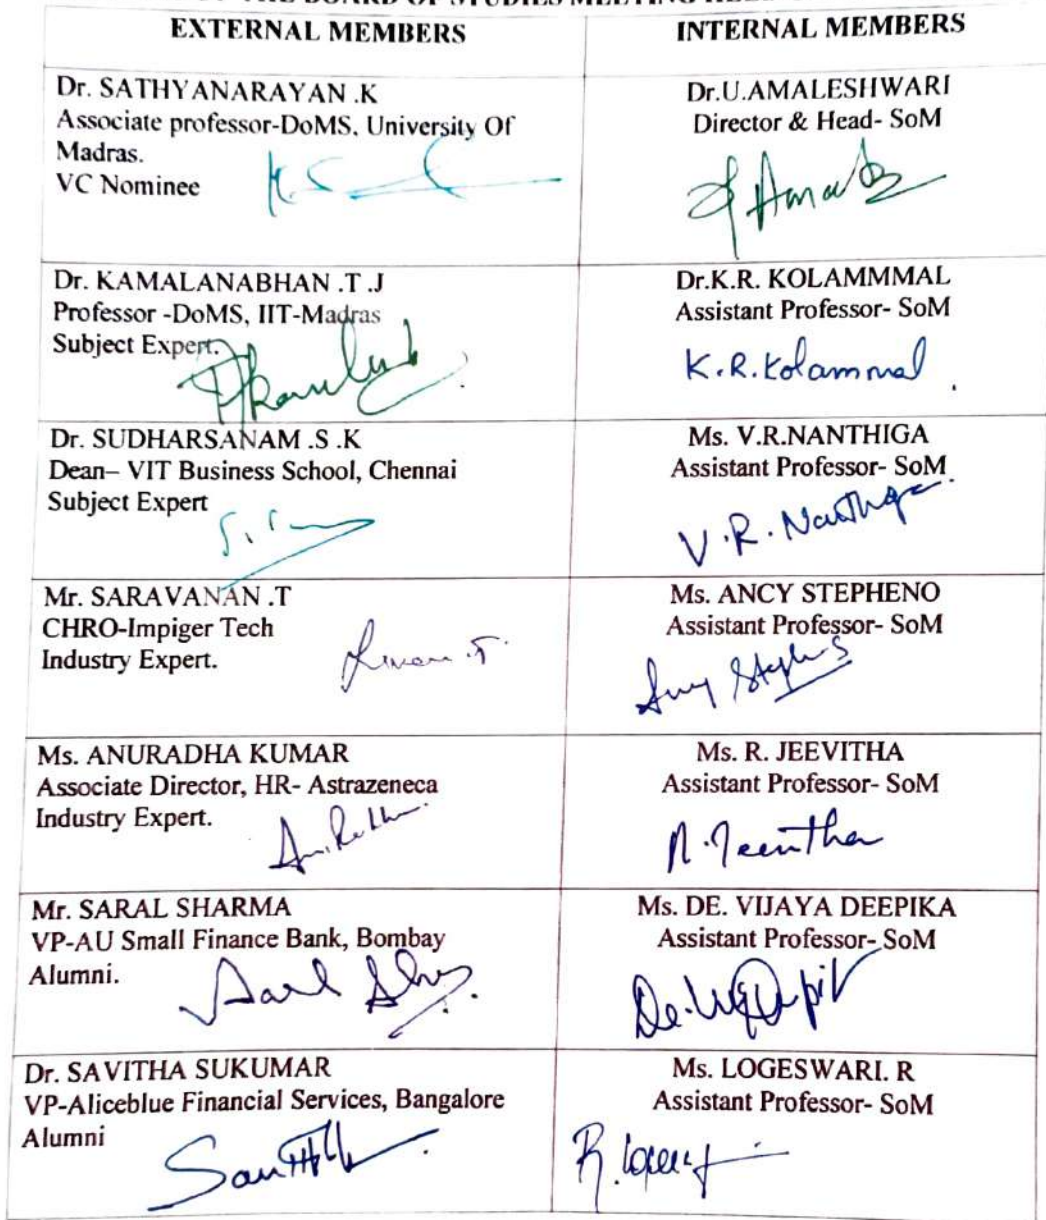 THE BOARD OF STUDIES MEETING
EXTERNAL MEMBERS
INTERNAL MEMBERS
Dr. SATHYANARAYAN .K
Associate professor-DoMS, University Of
Madras.
VC Nominee
Dr.U.AMALESHWARI
Director & Head- SoM
Dr. KAMALANABHAN .T .J
Professor -DoMS, IIT-Madras
Subject Expert.
Dr.K.R. KOLAMMMAL
Assistant Professor- SoM
K.R.Kolammal
Dr. SUDHARSANAM .S .K
Dean– VIT Business School, Chennai
Subject Expert
Ms. V.R.NANTHIGA
Assistant Professor- SoM
V.R.Nanthiga
Mr. SARAVANAN .T
CHRO-Impiger Tech
Industry Expert.
Ms. ANCY STEPHENO
Assistant Professor- SoM
Ms. ANURADHA KUMAR
Associate Director, HR- Astrazeneca
Industry Expert.
Ms. R. JEEVITHA
Assistant Professor- SoM
R.Jeevitha
Mr. SARAL SHARMA
VP-AU Small Finance Bank, Bombay
Alumni.
Ms. DE. VIJAYA DEEPIKA
Assistant Professor- SoM
Dr. SAVITHA SUKUMAR
VP-Aliceblue Financial Services, Bangalore
Alumni
Ms. LOGESWARI. R
Assistant Professor- SoM